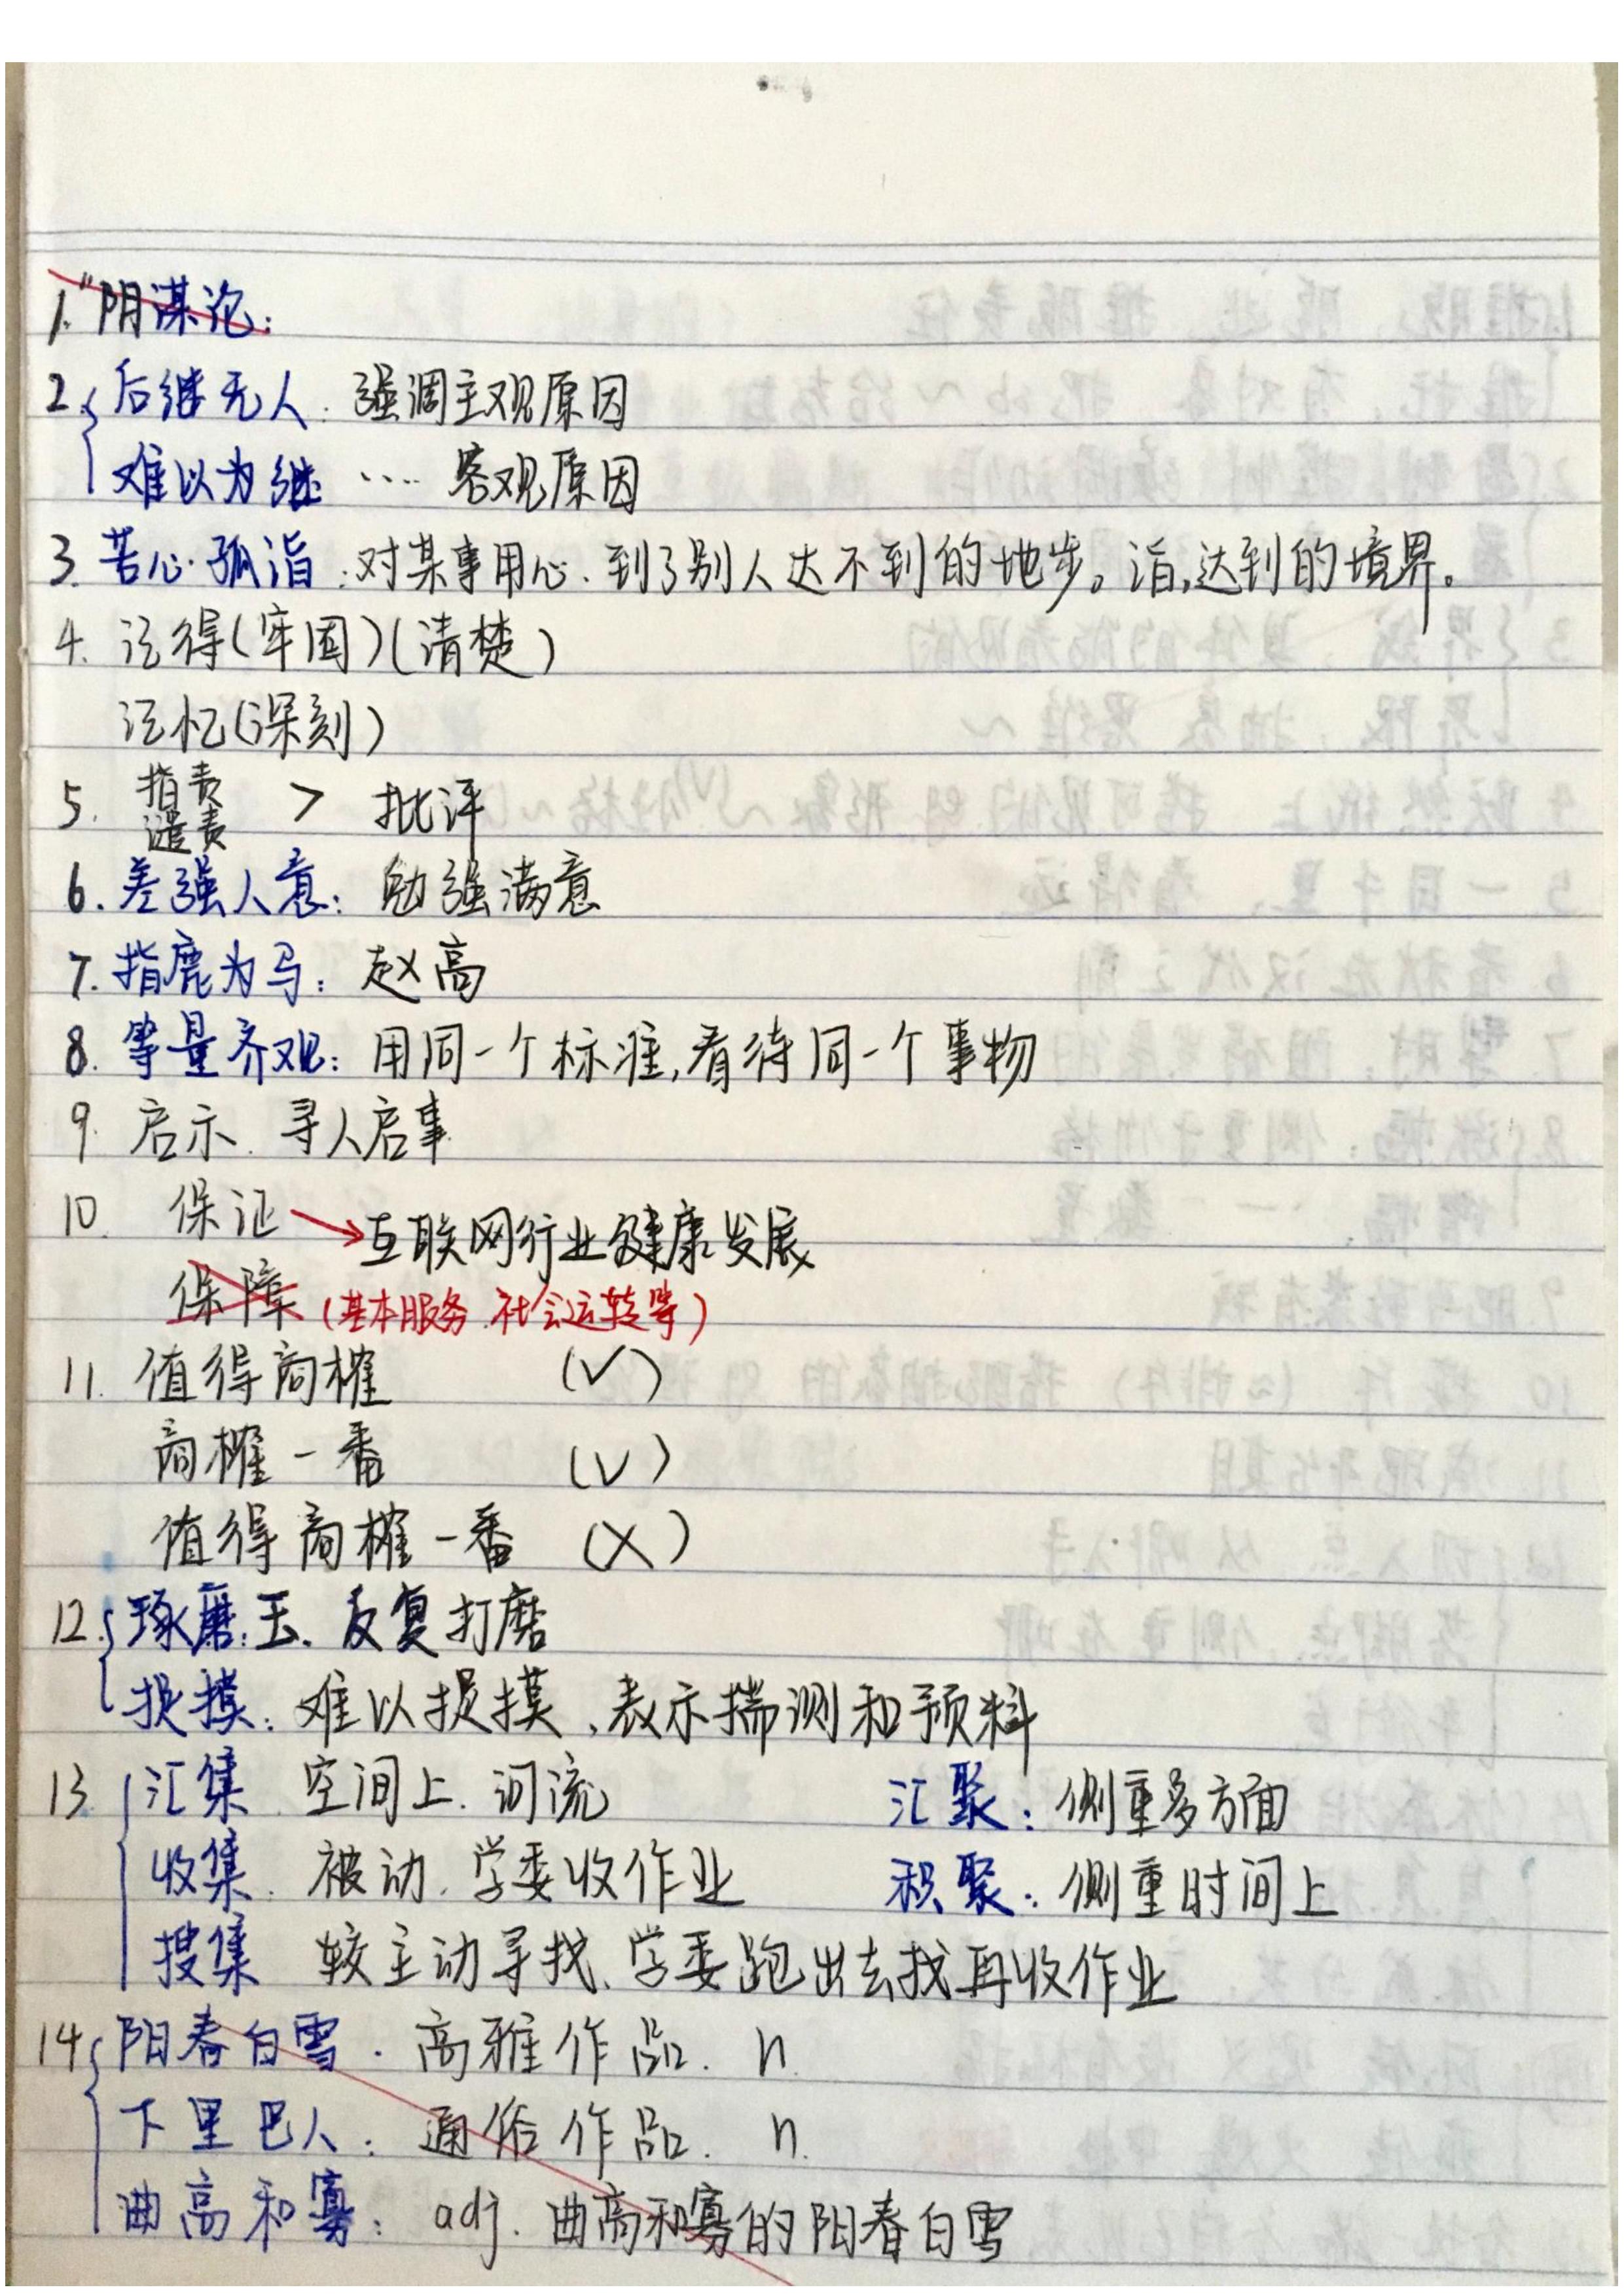 1."阴谋论:
2.后继无人.强调主观原因
难以为继 ····客观原因
3.苦心孤诣:对某事用心、到了别人达不到的地步。诣,达到的境界。
4.记得(牢固)(清楚)
记忆(深刻)
5.指责 > 批评
谴责
6.差强人意:勉强满意
7.指鹿为马:赵高
8.等量齐观:用同一个标准,看待同一个事物
9.启示.寻人启事
10.保证→互联网行业健康发展
保障(基本服务.社会运转等)
11.值得商榷 (√)
商榷一番 (√)
值得商榷一番 (×)
12.琢磨:玉.反复打磨
捉摸:难以捉摸、表示揣测和预料
13.汇集.空间上.河流 汇聚:侧重多方面
收集.被动.学委收作业 积聚:侧重时间上
搜集 较主动寻找、学委跑出去找再收作业
14.阳春白雪.高雅作品.n.
下里巴人:通俗作品.n.
曲高和寡:adj.曲高和寡的阳春白雪